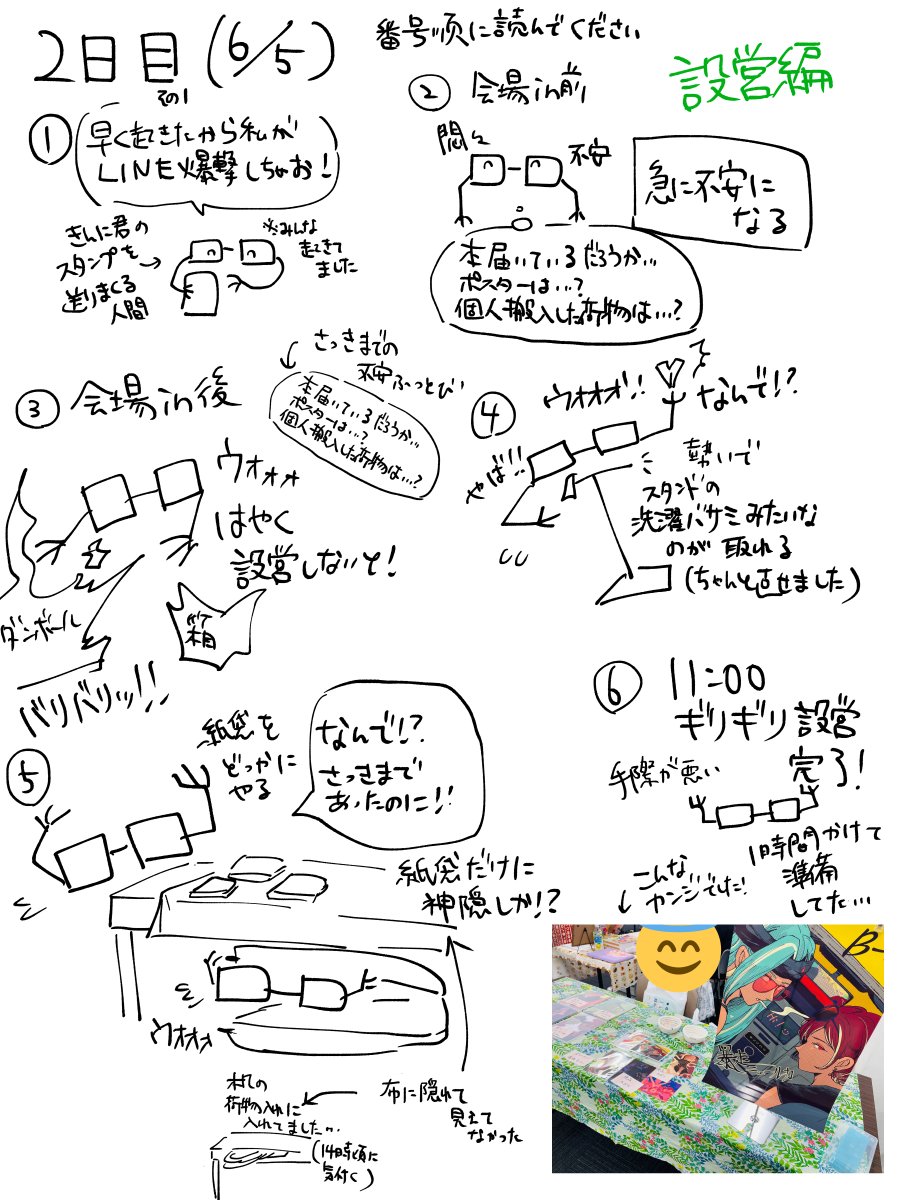 2日目(6/5)
その1
番号順に読んでください
設営編
①
早く起きたから私が
LINE爆撃しちゃお!
きんに君の
スタンプを
送りまくる
人間
※みんな
起きて
ました
② 会場in前
悶々
不安
急に不安に
なる
本届いているだろうか…
ポスターは…?
個人搬入した荷物は…?
③ 会場in後
さっきまでの
不安ふっとび
本届いているだろうか…
ポスターは…?
個人搬入した荷物は…?
ウォォォ
はやく
設営しないと!
ダンボール
バリバリッ!!
④
ウォオオ!!
なんで!?
やば!!
勢いで
スタンドの
洗濯バサミみたいな
のが取れる
(ちゃんと直せました)
⑤
紙袋を
どっかに
やる
なんで!?
さっきまで
あったのに!!
紙袋だけに
神隠しか!?
ウォォォ
布に隠れて
見えて
なかった
机の
荷物入れに
入れてました…
(14時頃に
気付く)
⑥ 11:00
ギリギリ設営
完了!
手際が悪い
1時間かけて
準備
してた…
こんな
カンジでした!